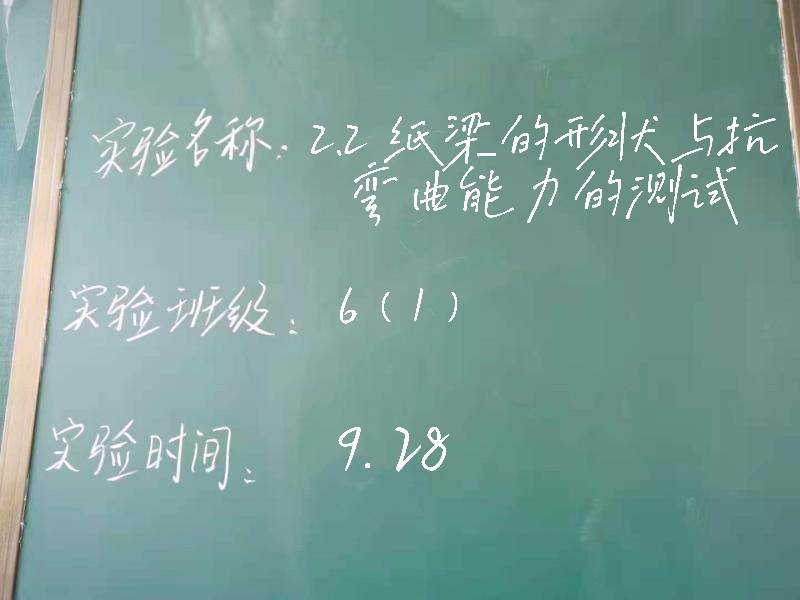 实验名称：2.2 纸梁的形状与抗
弯曲能力的测试
实验班级：6（1）
实验时间：9.28